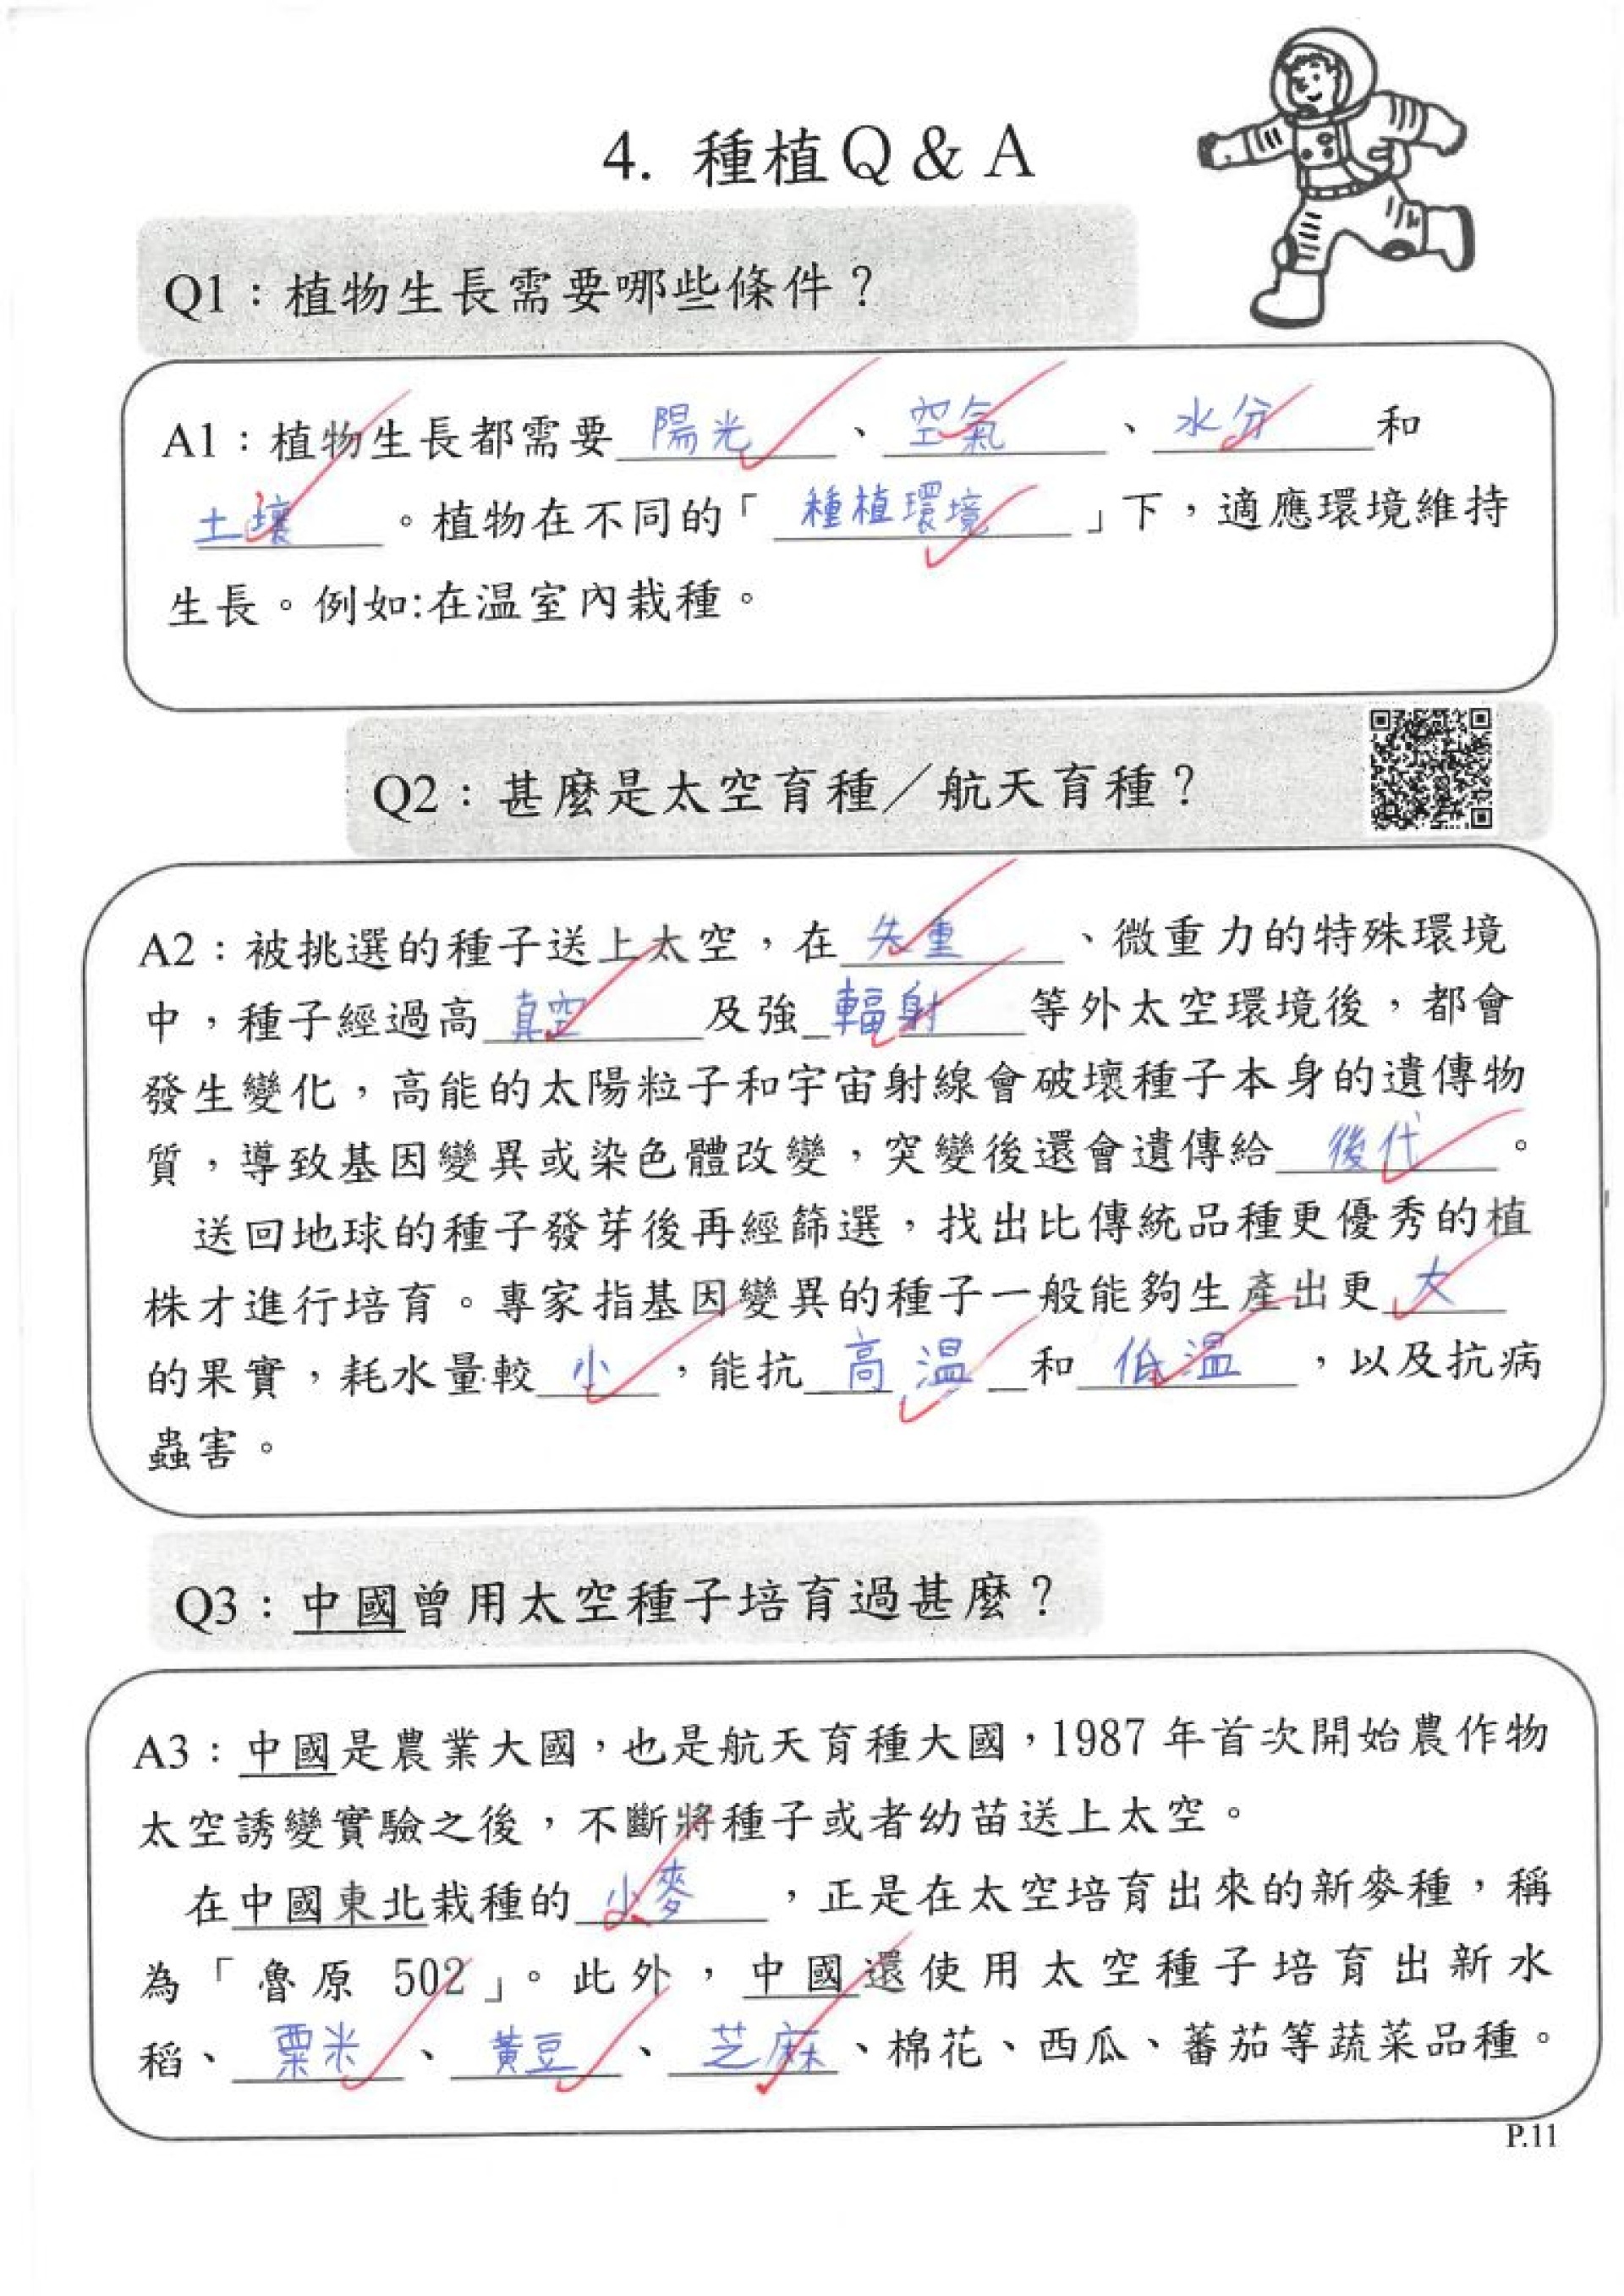 4. 種植Q & A
Q1：植物生長需要哪些條件？
A1：植物生長都需要 陽光 、 空氣 、 水分 和
土壤 。植物在不同的「 種植環境 」下，適應環境維持
生長。例如:在温室內栽種。
Q2：甚麼是太空育種／航天育種？
A2：被挑選的種子送上太空，在 失重 、微重力的特殊環境
中，種子經過高 真空 及強 輻射 等外太空環境後，都會
發生變化，高能的太陽粒子和宇宙射線會破壞種子本身的遺傳物
質，導致基因變異或染色體改變，突變後還會遺傳給 後代 。
送回地球的種子發芽後再經篩選，找出比傳統品種更優秀的植
株才進行培育。專家指基因變異的種子一般能夠生產出更 大
的果實，耗水量較 小 ，能抗 高溫 和 低溫 ，以及抗病
蟲害。
Q3：中國曾用太空種子培育過甚麼？
A3：中國是農業大國，也是航天育種大國，1987 年首次開始農作物
太空誘變實驗之後，不斷將種子或者幼苗送上太空。
在中國東北栽種的 小麥 ，正是在太空培育出來的新麥種，稱
為「魯原 502」。此外，中國還使用太空種子培育出新水
稻、 粟米 、 黃豆 、 芝麻 、棉花、西瓜、蕃茄等蔬菜品種。
P.11